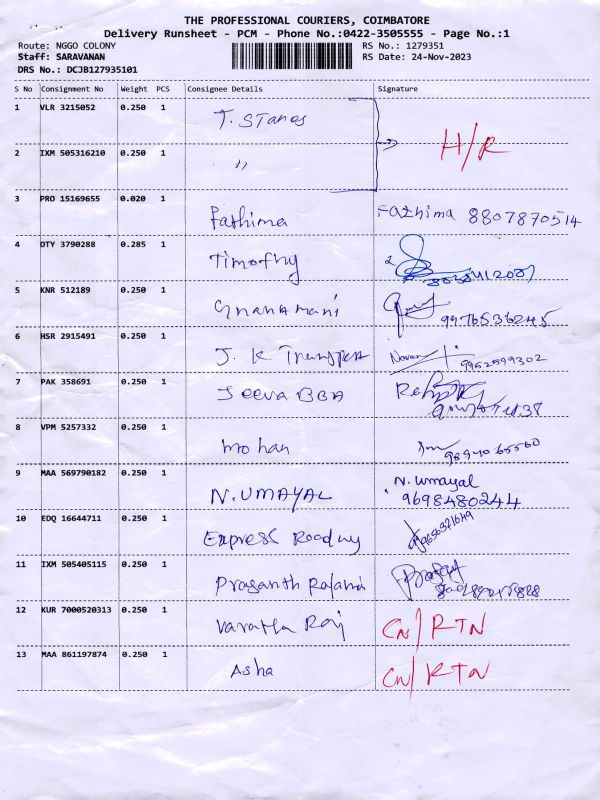 THE PROFESSIONAL COURIERS, COIMBATORE
Delivery Runsheet - PCM - Phone No.:0422-3505555 - Page No.:1
Route: NGGO COLONY RS No.: 1279351
Staff: SARAVANAN RS Date: 24-Nov-2023
DRS No.: DCJB127935101
S No Consignment No Weight PCS Consignee Details Signature
1 VLR 3215052 0.250 1 T. Stanes H/R
2 IXM 505316210 0.250 1 "
3 PRO 15169655 0.020 1 Fathima Fathima 8807870514
4 DTY 3790288 0.285 1 Timothy
5 KNR 512189 0.250 1 Gnanamani 9976536245
6 HSR 2915491 0.250 1 J. K. 9952599302
7 PAK 358691 0.250 1 Jeeva BBA
8 VPM 5257332 0.250 1 Mohan 9894065560
9 MAA 569790182 0.250 1 N. UMAYAL N. Umayal
9698480244
10 EDQ 16644711 0.250 1 Express
11 IXM 505405115 0.250 1 Prasanth
12 KUR 7000520313 0.250 1 Raj CN/RTN
13 MAA 861197874 0.250 1 Asha CN/RTN